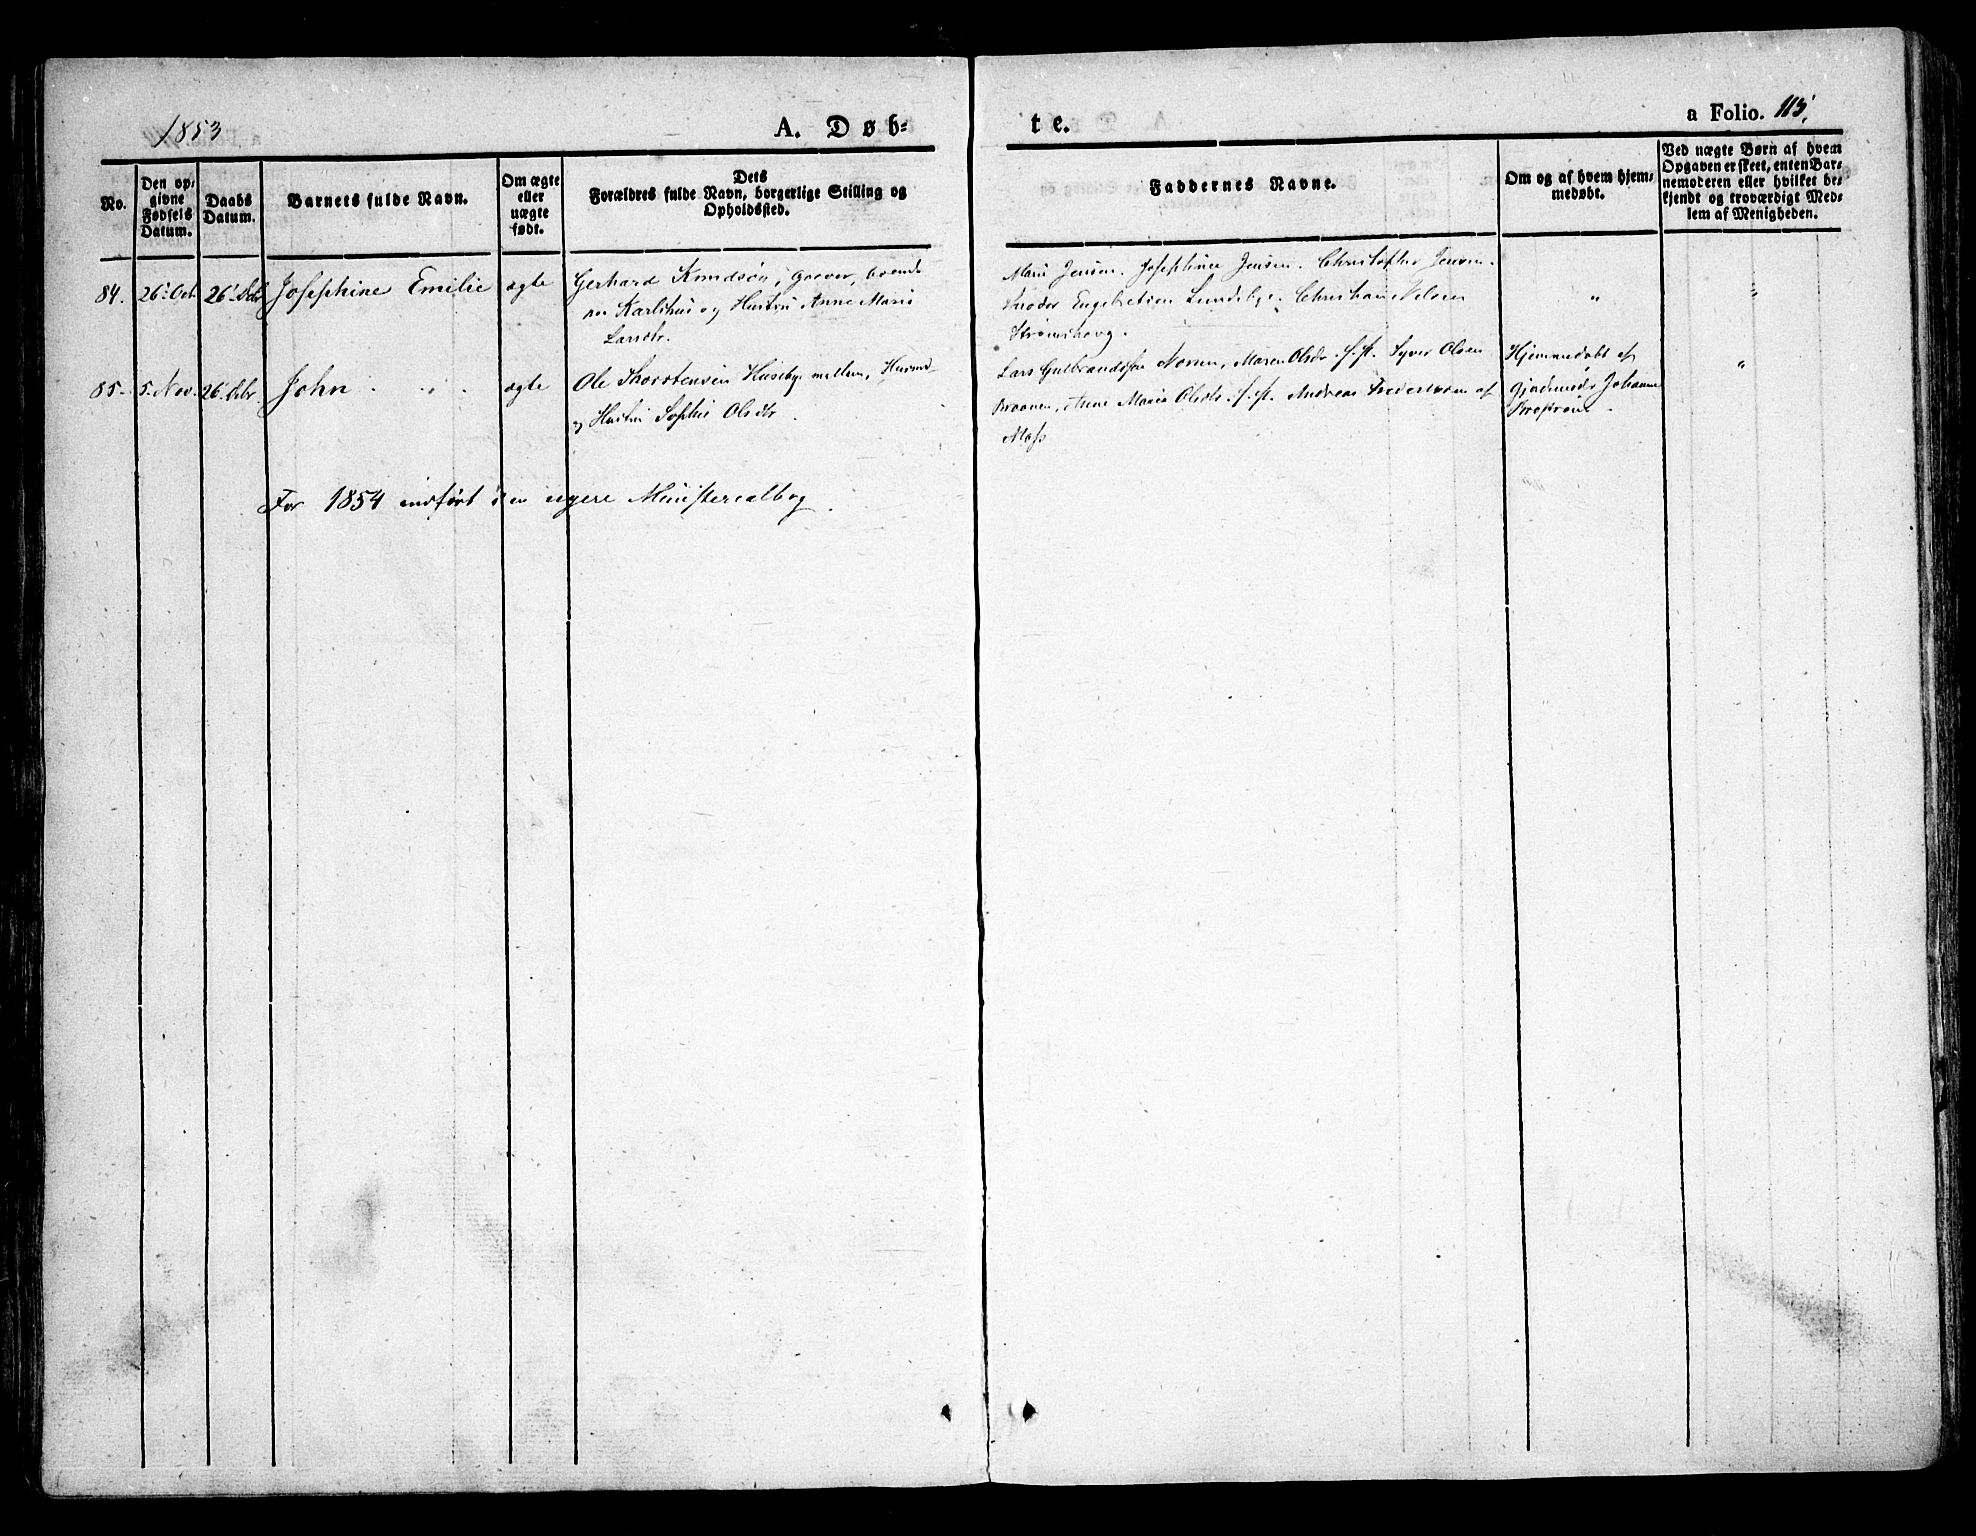 1853
A. Døb=
te.
a Folio. 115.
No.
Den op=
givne
Fødsels
Datum.
Daabs
Datum.
Barnets fulde Navn.
Om ægte
eller
uægte
født.
Dets
Forældres fulde Navn, borgerlige Stilling og
Opholdssted.
Faddernes Navne.
Om og af hvem hjem=
medøbt.
Ved uægte Børn af hvem
Opgaven er skeet, enten Bar=
nemoderen eller hvilket be=
kjendt og troværdigt Med=
lem af Menigheden.
84. 26' Oct. 26' Dcbr. Josephine Emilie ægte
Gerhard Knudsøn, boende
Karlshus og Hustru Anne Maria
Larsdtr.
Marie Jensen. Josephine Jensen. Christoffer Jensen.
Engebretsen Lundeby. Christian Nelsen
"
"
85. 5. Nov. 26' Dcbr. John. " " ægte
Ole Thorstensen Huseby mellem, Husmd
og Hustru Sophie Olsdtr.
Lars Gulbrandsen Noren, Maren Olsdr. s. st. Syver Olsen
Braaten, Anne Maria Olsdr. s. st. Andreas af
Moss
Hjemmedøbt af
Gjordemdr Johanne
"
For 1854 indført i en nyere Ministerialbog.